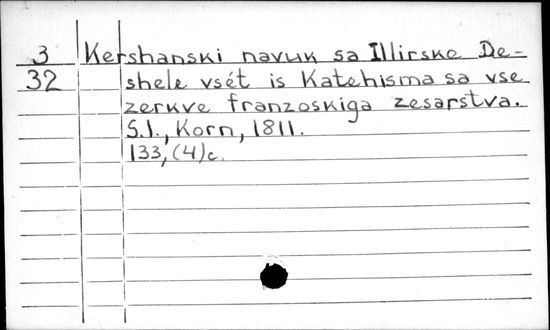 3 Kershanski navuk sa Illirske De-
32 shele vsét is Katehisma sa vse
zerkve franzoskiga zesarstva.
S.l., Korn, 1811.
133, (4)c.